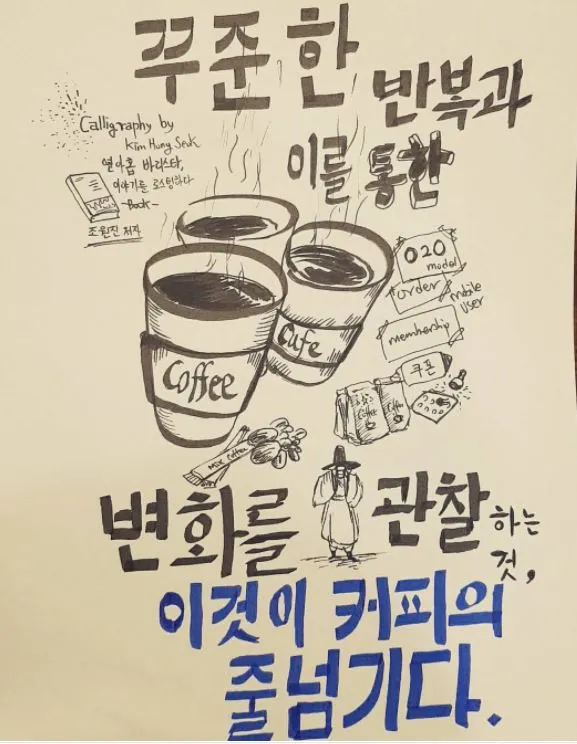 꾸준한
반복과
Calligraphy by
Kim Hung Seuk
열아홉 바리스타,
이야기를 로스팅하다
-Book-
조원진 저자
이를 통한
O2O
model
order
mobile
user
membership
쿠폰
Coffee
Cafe
Coffee
Mix Coffee
변화를 관찰하는
것,
이것이 커피의
줄넘기다.